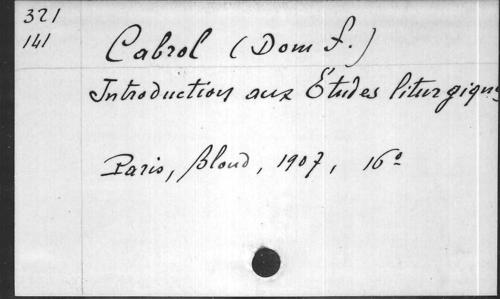 321
141
Cabrol (Dom F.)
Introduction aux Études liturgiques
Paris, Bloud, 1907, 16º